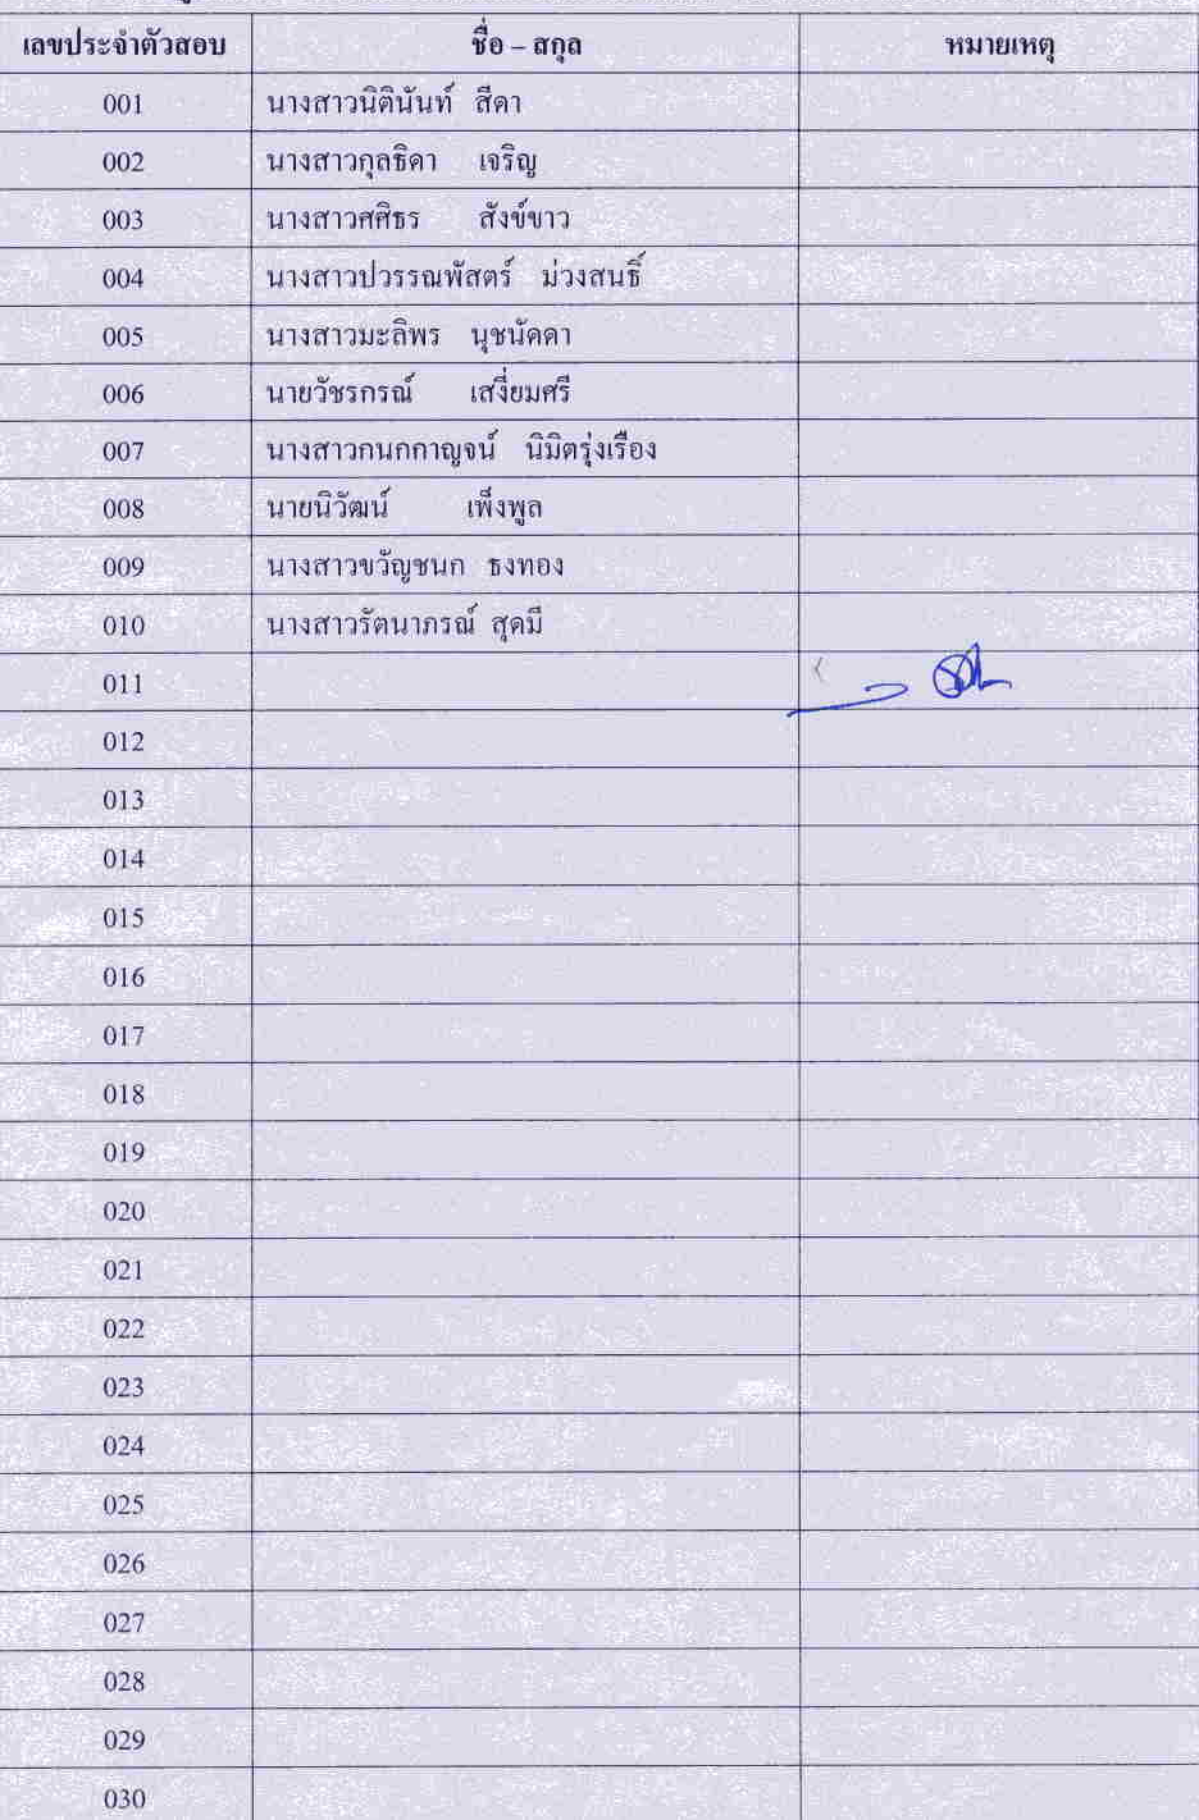 เลขประจำตัวสอบ ชื่อ – สกุล หมายเหตุ
001 นางสาวนิตินันท์ สีดา
002 นางสาวกุลธิดา เจริญ
003 นางสาวศศิธร สังข์ขาว
004 นางสาวปวรรณพัสตร์ ม่วงสนธิ์
005 นางสาวมะลิพร นุชนัดดา
006 นายวัชรกรณ์ เสงี่ยมศรี
007 นางสาวกนกกาญจน์ นิมิตรุ่งเรือง
008 นายนิวัฒน์ เพ็งพูล
009 นางสาวขวัญชนก ธงทอง
010 นางสาวรัตนาภรณ์ สุดมี
011
012
013
014
015
016
017
018
019
020
021
022
023
024
025
026
027
028
029
030